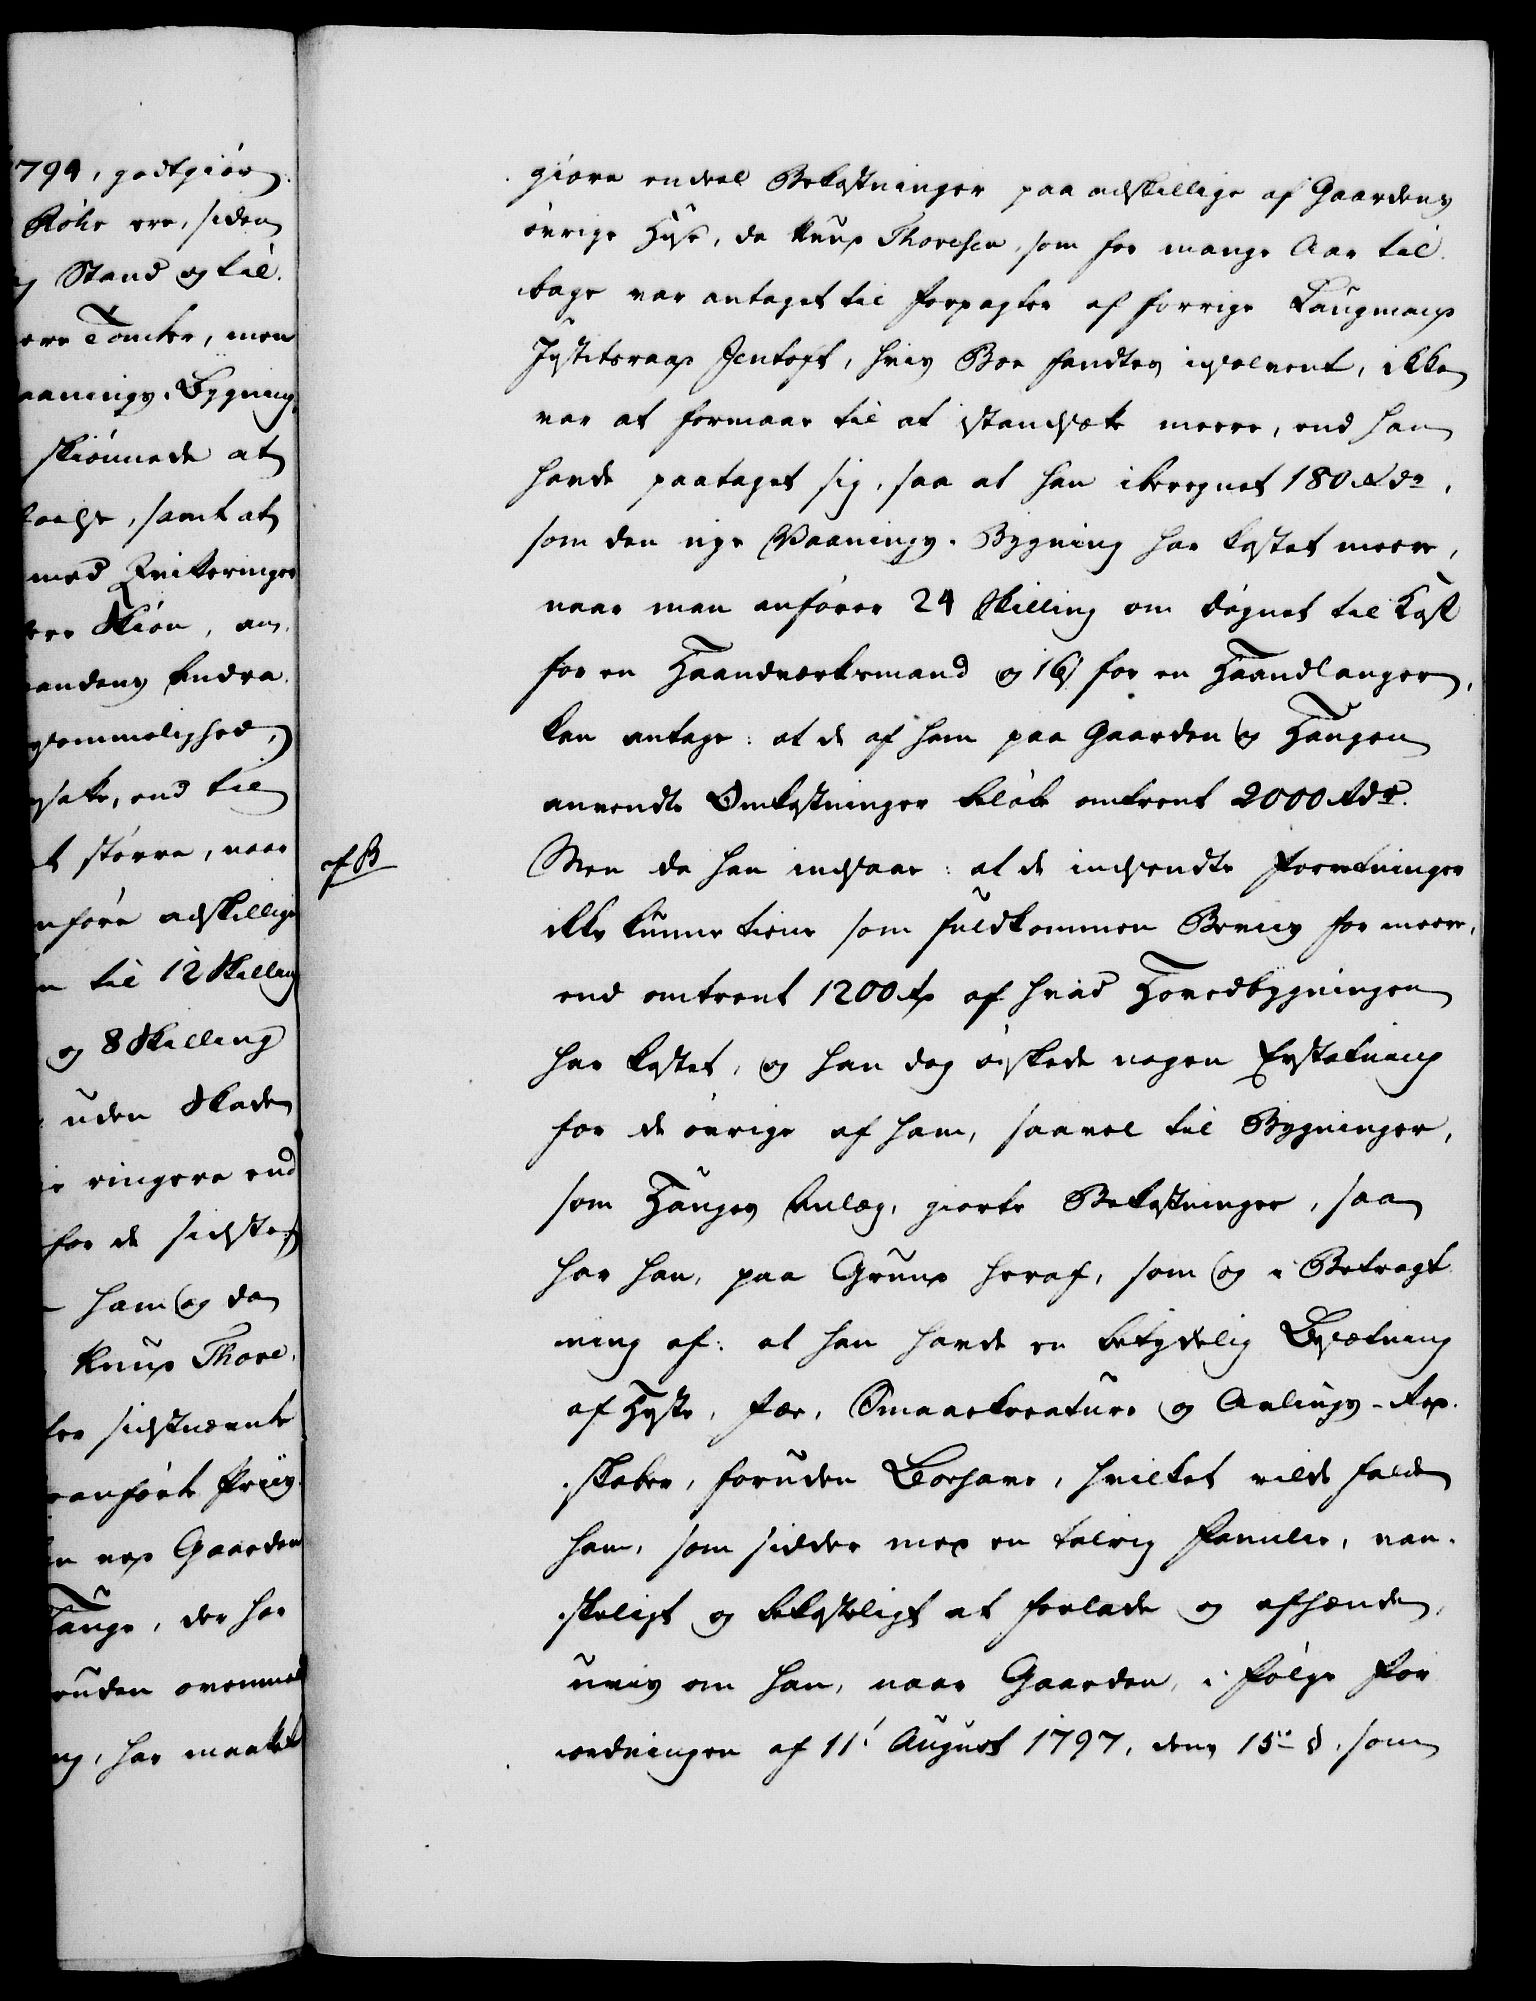 794, godtgiøre
Røhr ere, siden
Stand og til
ere Tomter, men
aanings-Bygning
skiønnede at
, samt at
med Qviteringer
Skiøn, an
andens Andra
gsommelighed,
sætte, end til
t større, naar
nføre adskillige
n til 12 Skilling
og 8 Skilling
uden Skade
e ringere end
for de sidste
ham og da
Knud Thore
ter sidstnævnte
anførte Priis
n ved Gaarden
Hauge, der har
ruden ovenmeld
ng, har maattet
giøre endeel Bekostninger paa adskillige af Gaardens
øvrige Huse, da Knud Thoresen, som for mange Aar til
bage var antaget til Forpagter af forrige Laugmand
Justitsraad Jentoft, hvis Boe fandtes insolvent, ikke
var at formaae til at istandsætte meere, end han
havde paataget sig, saa at han iberegnet 180 Rdr,
som den nye Vaanings-Bygning har kostet meere,
naar man anfører 24 Skilling om Døgnet til Kost
for en Haandværksmand og 16 ß for en Haandlanger,
kan antage: at de af ham paa Gaarden og Haugen
anvendte Omkostninger beløbe omtrent 2000 Rdr.
Men da han indsaae: at de indsendte Forretninger
ikke kunne tiene som fuldkommen Beviis for meere,
end omtrent 1200 Rd af hvad Hovedbygningen
har kostet, og han dog ønskede nogen Erstatning
for de øvrige af ham, saavel til Bygninger,
som Hauges Anlæg, giorte Bekostninger, saa
har han, paa Grund heraf, som og i Betragt
ning af: at han havde en betydelig Besætning
af Heste, Fæe, Smaaekreature og Avlings-Red
skaber, foruden Boehave, hvilket vilde falde
ham, som sidder med en talrig Familie, van
skeligt og bekosteligt at forlade og afhænde,
uvis om han, naar Gaarden, i Følge For
ordningen af 11' August 1797, dens 15de §, som